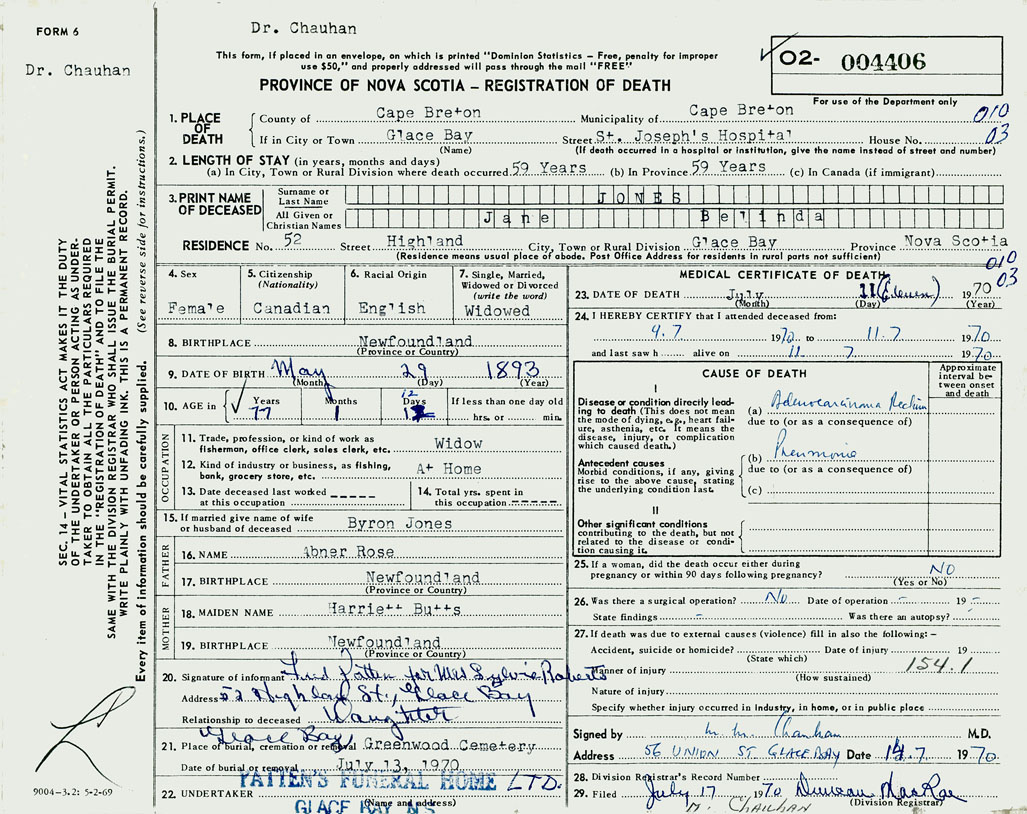 FORM 6
Dr. Chauhan
Dr. Chauhan
This form, if placed in an envelope, on which is printed "Dominion Statistics – Free, penalty for improper
use $50," and properly addressed will pass through the mail "FREE"
PROVINCE OF NOVA SCOTIA – REGISTRATION OF DEATH
02- 004406
For use of the Department only
010
03
1. PLACE OF DEATH
County of Cape Breton Municipality of Cape Breton
If in City or Town Glace Bay Street St. Joseph's Hospital House No.
(Name) (If death occurred in a hospital or institution, give the name instead of street and number)
2. LENGTH OF STAY (in years, months and days)
(a) In City, Town or Rural Division where death occurred 59 Years (b) In Province 59 Years (c) In Canada (if immigrant)
3. PRINT NAME OF DECEASED
Surname or Last Name JONES
All Given or Christian Names Jane Belinda
RESIDENCE No. 52 Street Highland City, Town or Rural Division Glace Bay Province Nova Scotia
(Residence means usual place of abode. Post Office Address for residents in rural parts not sufficient)
010
03
4. Sex
Female
5. Citizenship
(Nationality)
Canadian
6. Racial Origin
English
7. Single, Married,
Widowed or Divorced
(write the word)
Widowed
8. BIRTHPLACE Newfoundland
(Province or Country)
9. DATE OF BIRTH May 29 1893
(Month) (Day) (Year)
10. AGE in
Years Months Days If less than one day old
77 1 12 hrs. or min.
OCCUPATION
11. Trade, profession, or kind of work as
fisherman, office clerk, sales clerk, etc. Widow
12. Kind of industry or business, as fishing,
bank, grocery store, etc. At Home
13. Date deceased last worked
at this occupation
14. Total yrs. spent in
this occupation
15. If married give name of wife
or husband of deceased Byron Jones
FATHER
16. NAME Abner Rose
17. BIRTHPLACE Newfoundland
(Province or Country)
MOTHER
18. MAIDEN NAME Harriett Butts
19. BIRTHPLACE Newfoundland
(Province or Country)
20. Signature of informant Fred Patten for Mrs Sylvia Roberts
Address 52 Highland St., Glace Bay
Relationship to deceased Daughter
Glace Bay
21. Place of burial, cremation or removal Greenwood Cemetery
Date of burial or removal July 13, 1970
PATTEN'S FUNERAL HOME LTD.
22. UNDERTAKER
(Name and address)
GLACE BAY N S
MEDICAL CERTIFICATE OF DEATH
23. DATE OF DEATH July 11 (Eleven) 1970
(Month) (Day) (Year)
24. I HEREBY CERTIFY that I attended deceased from:
4.7 1970 to 11.7 1970
and last saw h alive on 11 7. 1970
CAUSE OF DEATH
Approximate
interval be-
tween onset
and death
I
Disease or condition directly lead-
ing to death (This does not mean
the mode of dying, e.g., heart fail-
ure, asthenia, etc. It means the
disease, injury, or complication
which caused death.)
(a) Adenocarcinoma Rectum
due to (or as a consequence of)
Antecedent causes
Morbid conditions, if any, giving
rise to the above cause, stating
the underlying condition last.
(b) Pneumonia
due to (or as a consequence of)
(c)
II
Other significant conditions
contributing to the death, but not
related to the disease or condi-
tion causing it.
25. If a woman, did the death occur either during
pregnancy or within 90 days following pregnancy? NO
(Yes or No)
26. Was there a surgical operation? No Date of operation – 19 –
State findings – Was there an autopsy?
27. If death was due to external causes (violence) fill in also the following: –
Accident, suicide or homicide? Date of injury 19
(State which)
Manner of injury 154.1
(How sustained)
Nature of injury
Specify whether injury occurred in Industry, in home, or in public place
Signed by M. M. Chauhan M.D.
Address 56 UNION ST GLACE BAY Date 14.7 1970
28. Division Registrar's Record Number
29. Filed July 17 1970 Duncan MacRae
(Division Registrar)
M. CHAUHAN
SEC. 14 – VITAL STATISTICS ACT MAKES IT THE DUTY
OF THE UNDERTAKER OR PERSON ACTING AS UNDER-
TAKER TO OBTAIN ALL THE PARTICULARS REQUIRED
IN THE "REGISTRATION OF DEATH" AND TO FILE THE
SAME WITH THE DIVISION REGISTRAR WHO SHALL ISSUE THE BURIAL PERMIT.
WRITE PLAINLY WITH UNFADING INK. THIS IS A PERMANENT RECORD.
Every item of information should be carefully supplied. (See reverse side for instructions.)
9004-3.2: 5-2-69